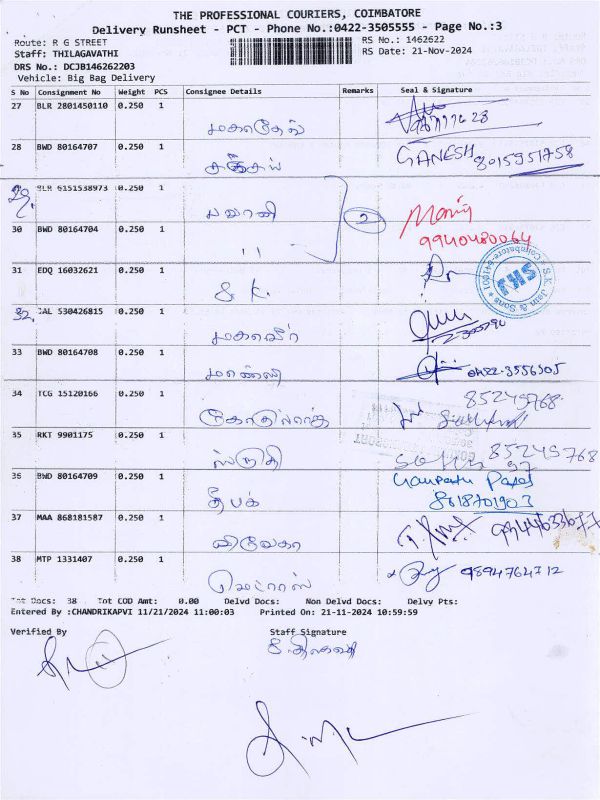 THE PROFESSIONAL COURIERS, COIMBATORE
Delivery Runsheet - PCT - Phone No.:0422-3505555 - Page No.:3
Route: R G STREET
RS No.: 1462622
Staff: THILAGAVATHI
RS Date: 21-Nov-2024
DRS No.: DCJB146262203
Vehicle: Big Bag Delivery
S No Consignment No Weight PCS Consignee Details Remarks Seal & Signature
27 BLR 2801450110 0.250 1
28 BWD 80164707 0.250 1 GANESH 8015951758
29 BLR 6151538973 0.250 1 பவானி 2
30 BWD 80164704 0.250 1 11 9940480064
31 EDQ 16032621 0.250 1 S. K. S.K. Jain & Sons Coimbatore-641001
32 CAL 530426815 0.250 1 மகாவீர்
33 BWD 80164708 0.250 1 0422-3556505
34 TCG 15120166 0.250 1
35 RKT 9901175 0.250 1 ஸ்ருதி
36 BWD 80164709 0.250 1 தீபக் 8618701903
37 MAA 868181587 0.250 1 விவேகா
38 MTP 1331407 0.250 1 மெட்ராஸ் 9894764712
Tot Docs: 38 Tot COD Amt: 0.00 Delvd Docs: Non Delvd Docs: Delvy Pts:
Entered By :CHANDRIKAPVI 11/21/2024 11:00:03 Printed On: 21-11-2024 10:59:59
Verified By Staff Signature